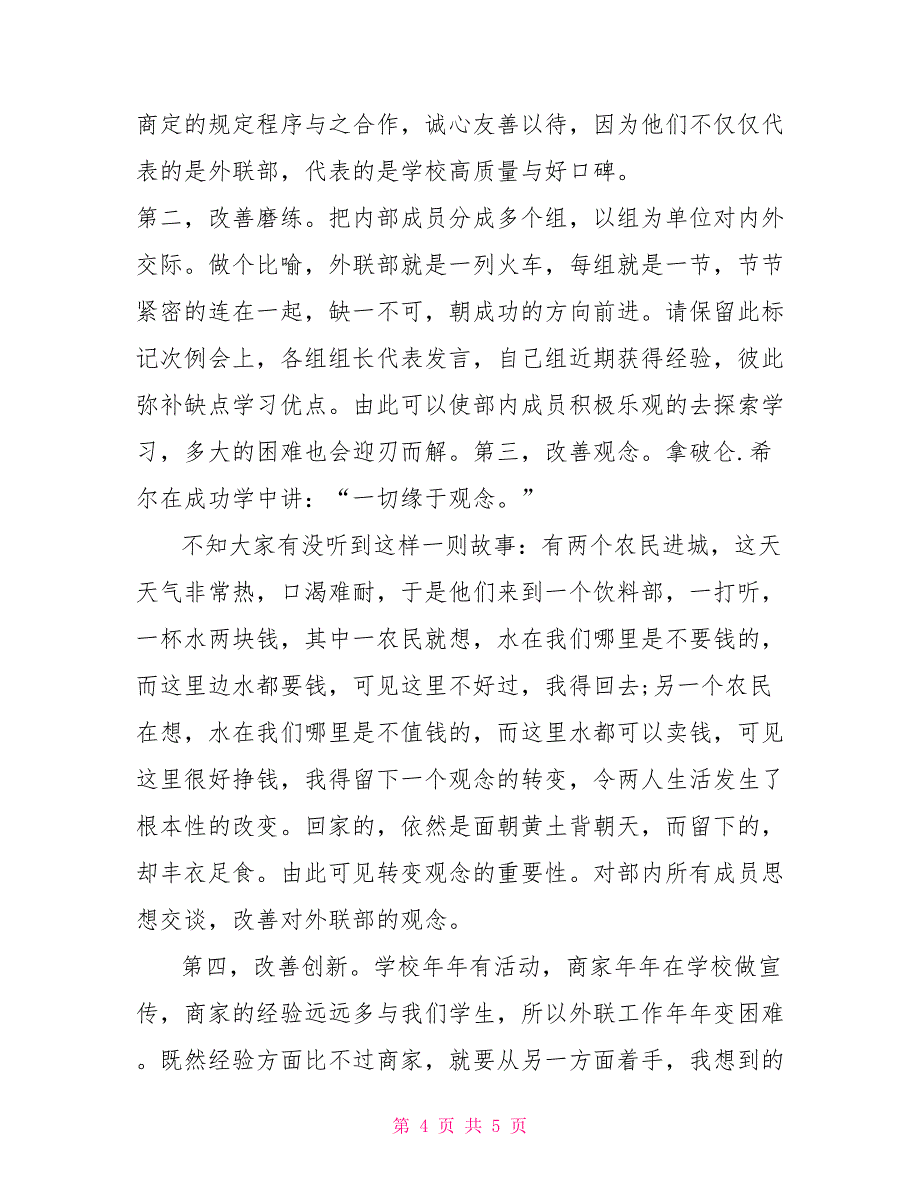 商定的规定程序与之合作，诚心友善以待，因为他们不仅仅代
表的是外联部，代表的是学校高质量与好口碑。
第二，改善磨练。把内部成员分成多个组，以组为单位对内外
交际。做个比喻，外联部就是一列火车，每组就是一节，节节
紧密的连在一起，缺一不可，朝成功的方向前进。请保留此标
记次例会上，各组组长代表发言，自己组近期获得经验，彼此
弥补缺点学习优点。由此可以使部内成员积极乐观的去探索学
习，多大的困难也会迎刃而解。第三，改善观念。拿破仑.希
尔在成功学中讲：“一切缘于观念。”
不知大家有没听到这样一则故事：有两个农民进城，这天
天气非常热，口渴难耐，于是他们来到一个饮料部，一打听，
一杯水两块钱，其中一农民就想，水在我们哪里是不要钱的，
而这里边水都要钱，可见这里不好过，我得回去;另一个农民
在想，水在我们哪里是不值钱的，而这里水都可以卖钱，可见
这里很好挣钱，我得留下一个观念的转变，令两人生活发生了
根本性的改变。回家的，依然是面朝黄土背朝天，而留下的，
却丰衣足食。由此可见转变观念的重要性。对部内所有成员思
想交谈，改善对外联部的观念。
第四，改善创新。学校年年有活动，商家年年在学校做宣
传，商家的经验远远多与我们学生，所以外联工作年年变困难
。既然经验方面比不过商家，就要从另一方面着手，我想到的
第 4 页 共 5 页